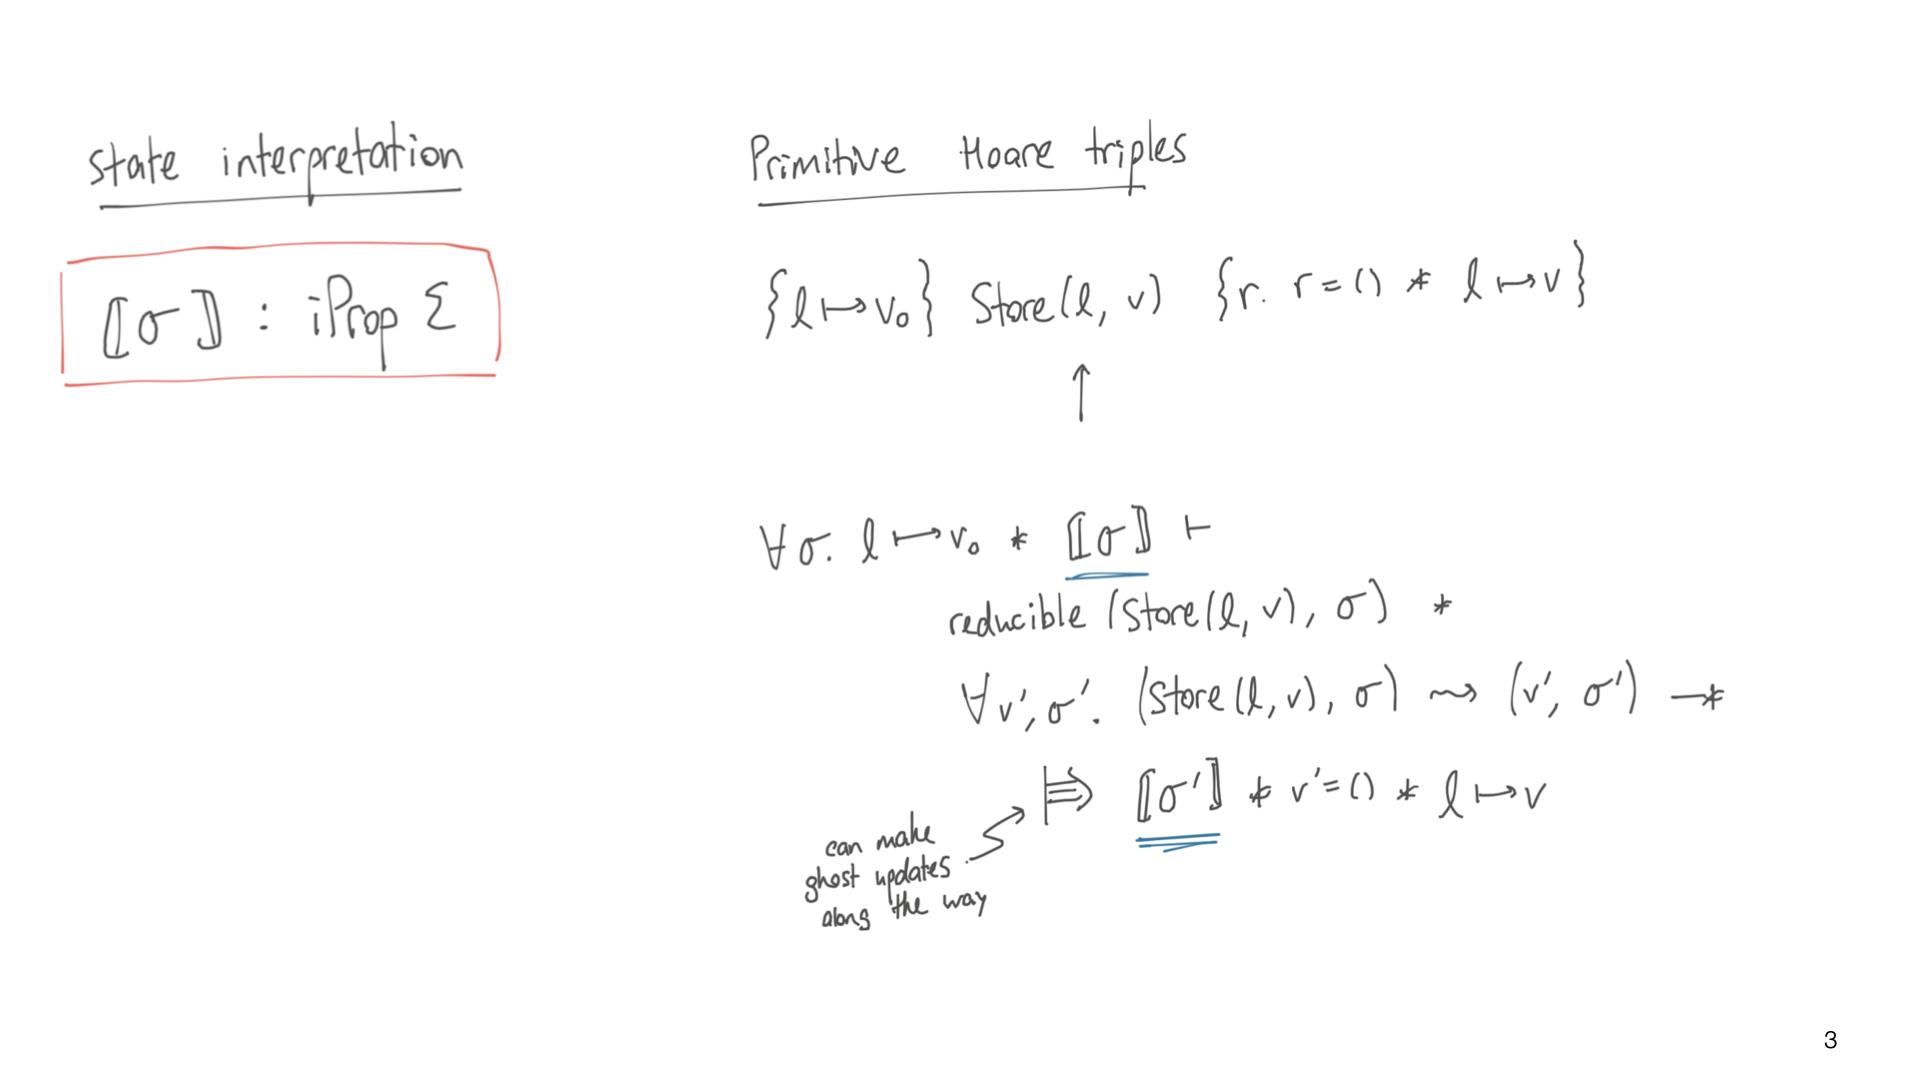 state interpretation
⟦σ⟧ : iProp Σ
Primitive Hoare triples
{l ↦ v₀} Store(l, v) {r. r = () * l ↦ v}
↑
∀σ. l ↦ v₀ * ⟦σ⟧ ⊢
reducible (Store(l, v), σ) *
∀v', σ'. (Store(l, v), σ) ⇝ (v', σ') -*
|⇛ ⟦σ'⟧ * v' = () * l ↦ v
can make
ghost updates
along the way
3